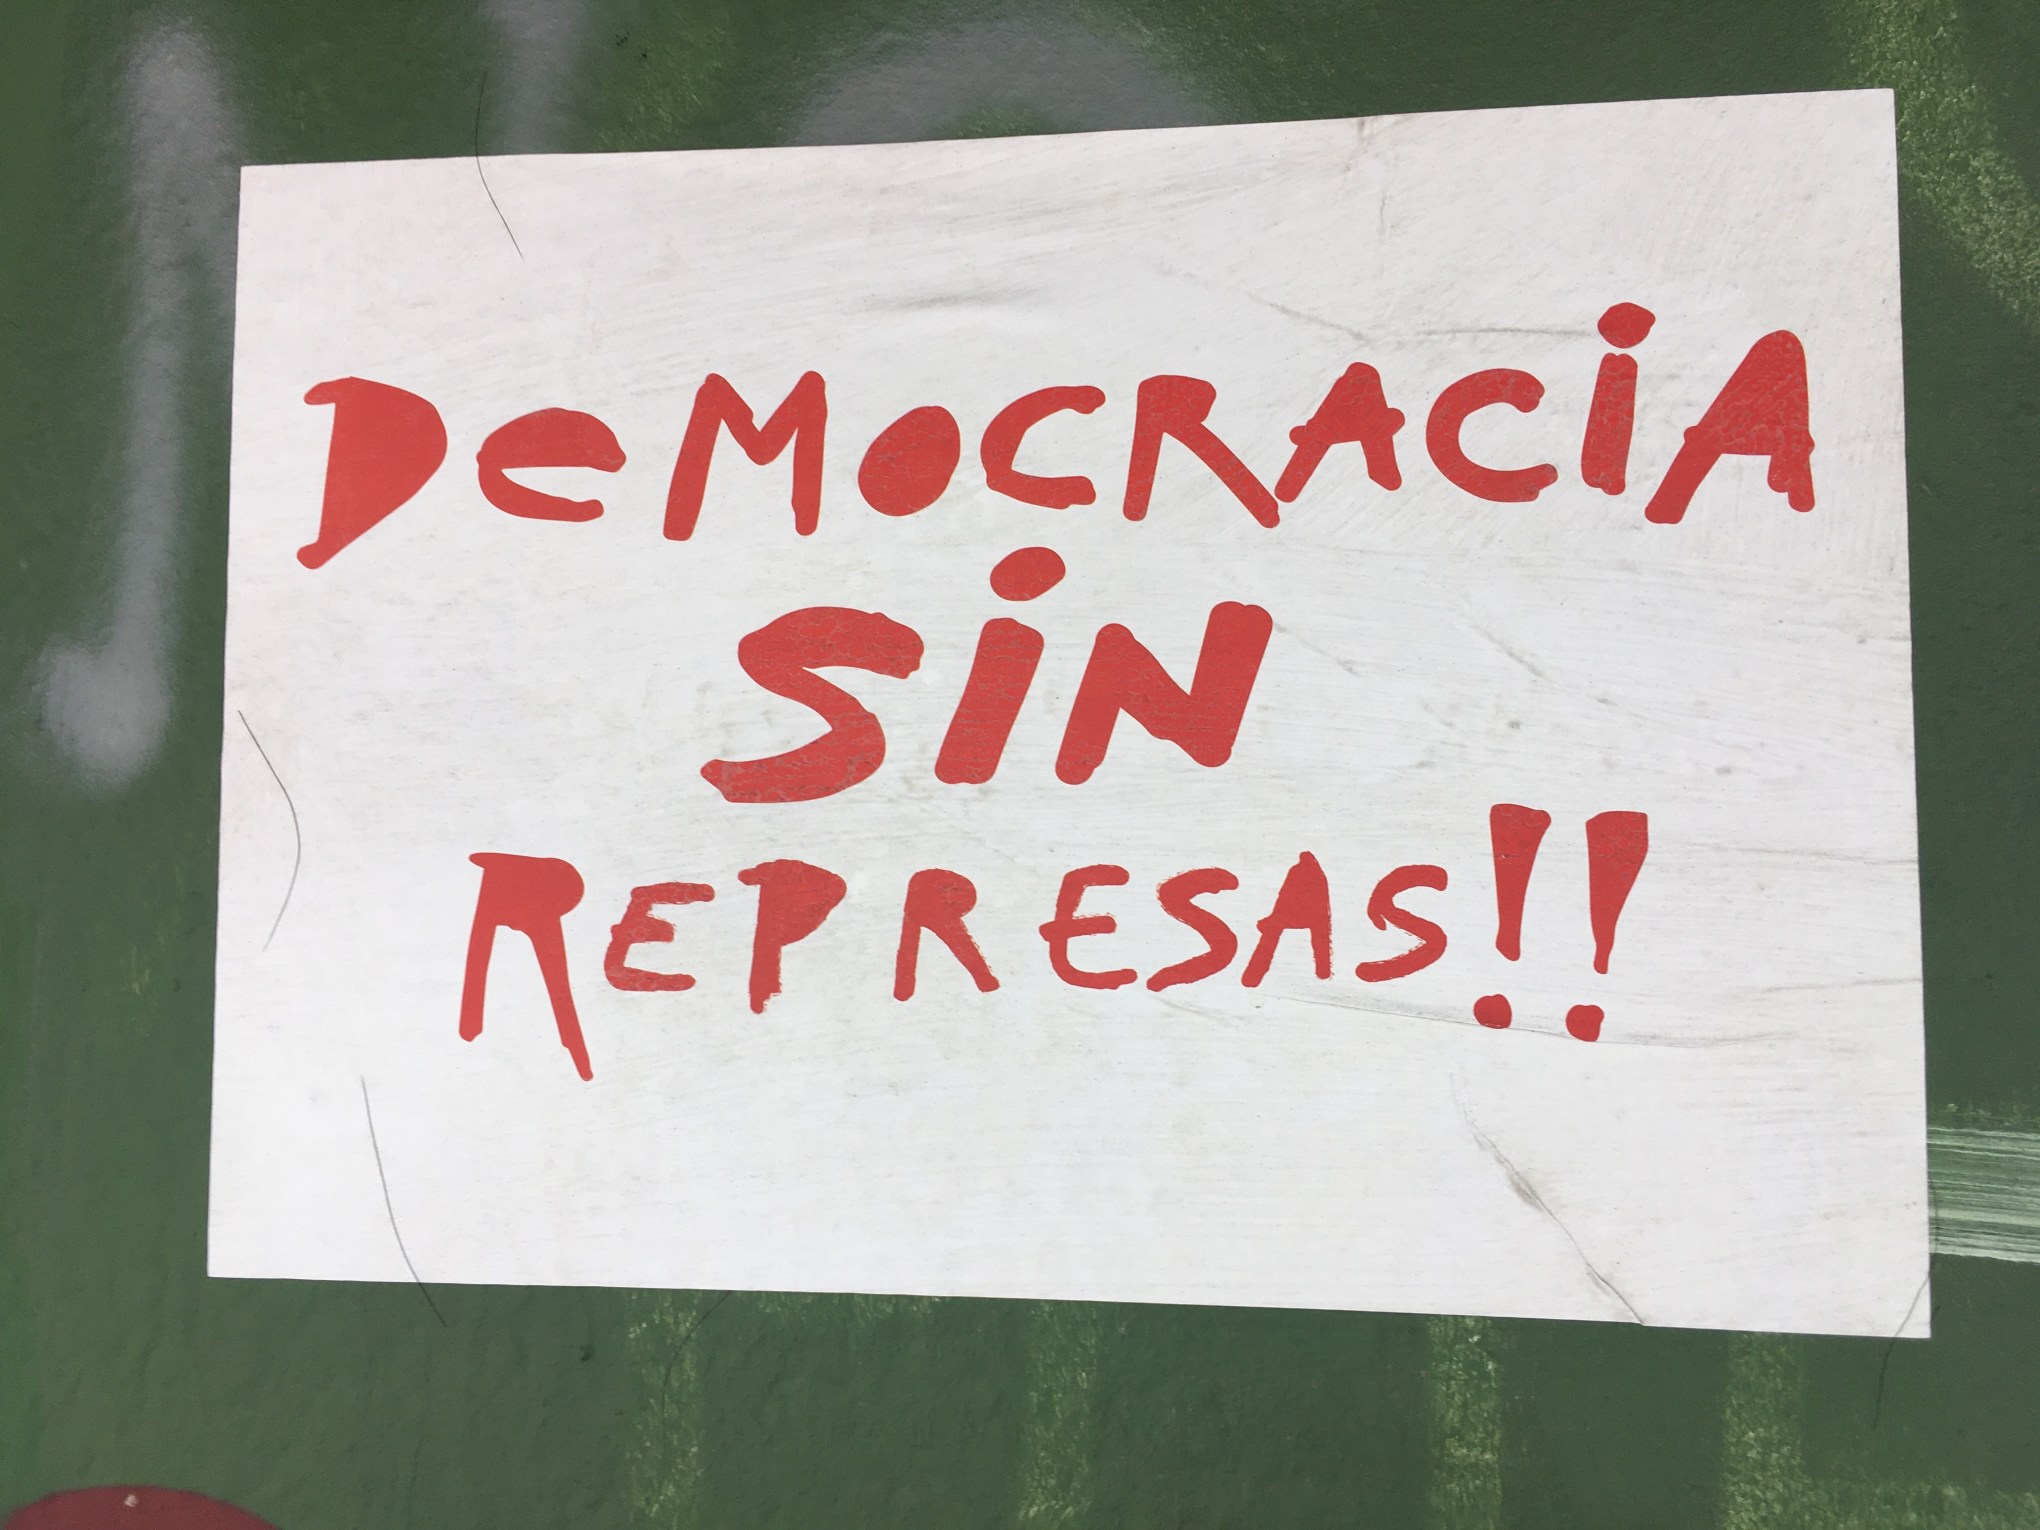 DeMOCRACiA
SiN
REPRESAS!!